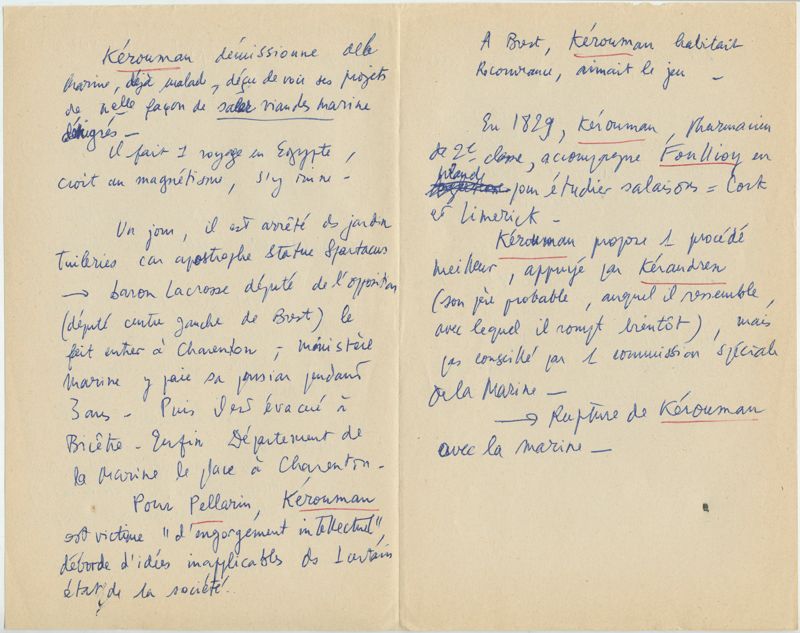 Kérouman démissionne de la
marine, déjà malade, déçu de voir ses projets
de nelle façon de saler viandes marine
dénigrés —
Il fait 1 voyage en Egypte,
croit au magnétisme, s'y ruine -
Un jour, il est arrêté ds jardin
Tuileries car apostrophe statue Spartacus
→ baron Lacrosse député de l'opposition
(député centre gauche de Brest) le
fait entrer à Charenton ; ministère
marine y paie sa pension pendant
3 ans - Puis il est évacué à
Bicêtre - Enfin Département de
la Marine le place à Charenton -
Pour Pellarin, Kérouman
est victime "d'engorgement intellectuel",
déborde d'idées inapplicables ds 1 certain
état de la société.
A Brest, Kérouman habitait
Recouvrance, aimait le jeu -
En 1829, Kérouman, pharmacien
de 2e classe, accompagne Foullioy en
Irlande pour étudier salaisons = Cork
et Limerick -
Kérouman propose 1 procédé
meilleur, appuyé par Kérandren
(son père probable, auquel il ressemble,
avec lequel il rompt bientôt), mais
pas conseillé par 1 commission spéciale
de la Marine —
→ Rupture de Kérouman
avec la marine —